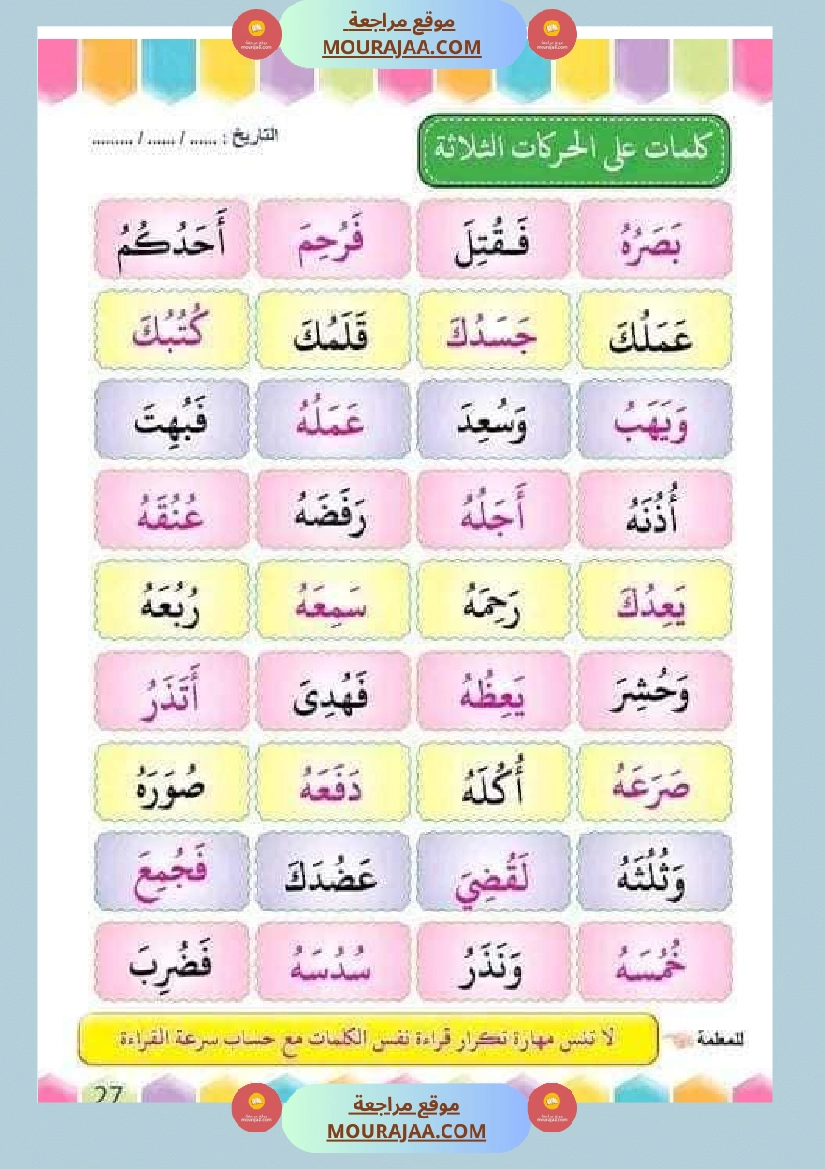 موقع مراجعة
MOURAJAA.COM
كلمات على الحركات الثلاثة
التاريخ : ...... / ...... / .........
بَصَرُهُ فَقُتِلَ فَرُحِمَ أَحَدُكُمُ
عَمَلُكَ جَسَدُكَ قَلَمُكَ كُتُبُكَ
وَيَهَبُ وَسُعِدَ عَمَلُهُ فَبُهِتَ
أُذُنَهُ أَجَلُهُ رَفَضَهُ عُنُقَهُ
يَعِدُكَ رَحِمَهُ سَمِعَهُ رُبُعَهُ
وَحُشِرَ يَعِظُهُ فَهُدِىَ أَتَذَرُ
صَرَعَهُ أُكُلَهُ دَفَعَهُ صُوَرَهُ
وَثُلُثَهُ لَقُضِيَ عَضُدَكَ فَجُمِعَ
خُمُسَهُ وَنَذَرُ سُدُسَهُ فَضُرِبَ
للمعلمة
لا تنس مهارة تكرار قراءة نفس الكلمات مع حساب سرعة القراءة
27
موقع مراجعة
MOURAJAA.COM